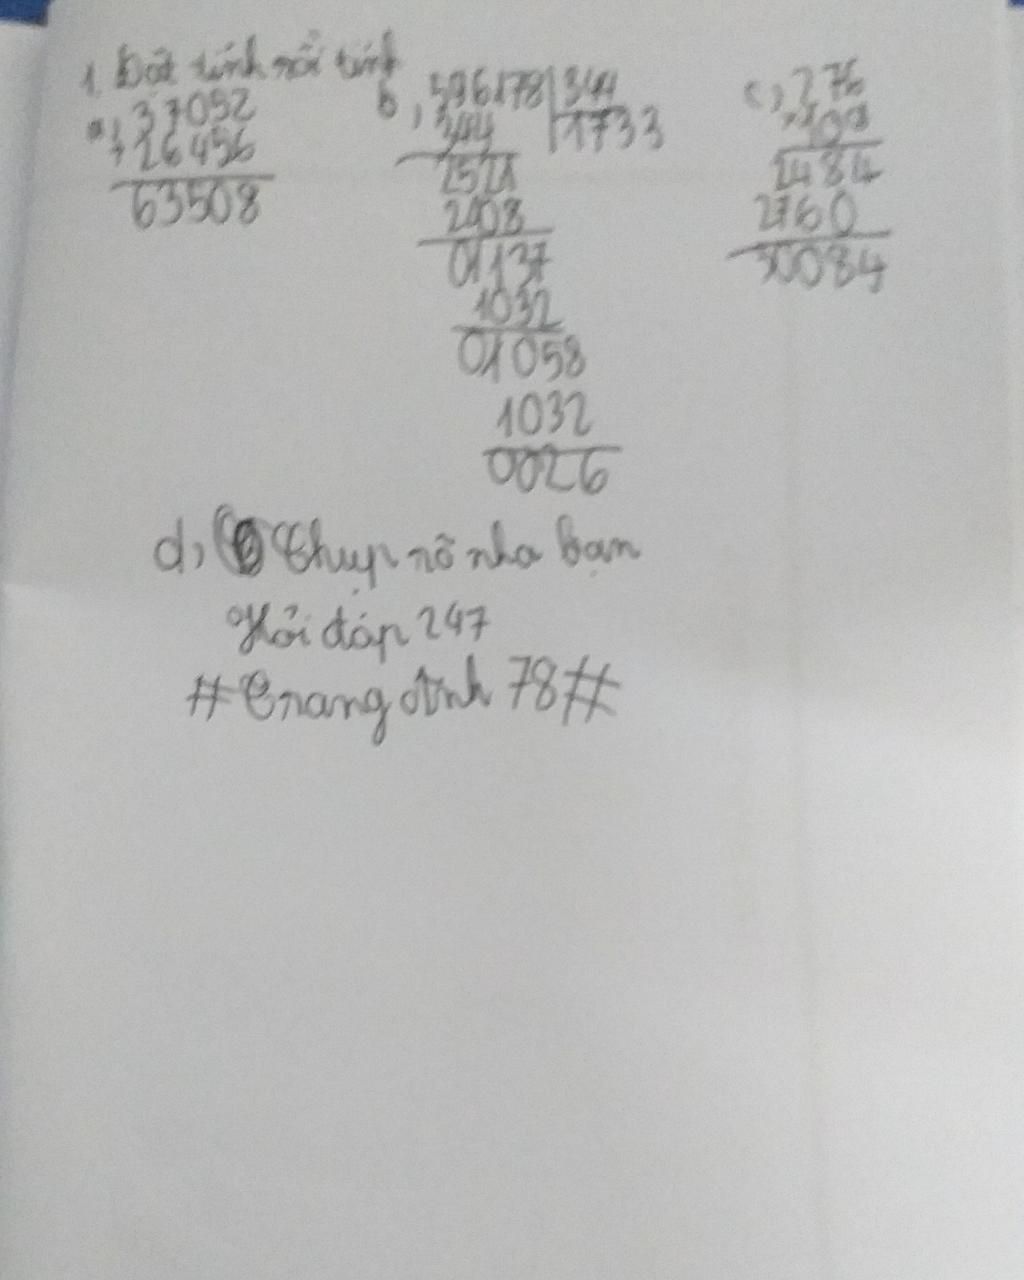 1. Đặt tính rồi tính
a, 37052
+ 26456
63508
b, 596178 344
344 1733
2521
2408
01137
1032
01058
1032
0026
c, 276
× 109
2484
2760
30084
d, Chụp rõ nha bạn
Hỏi đáp 247
# 78 #